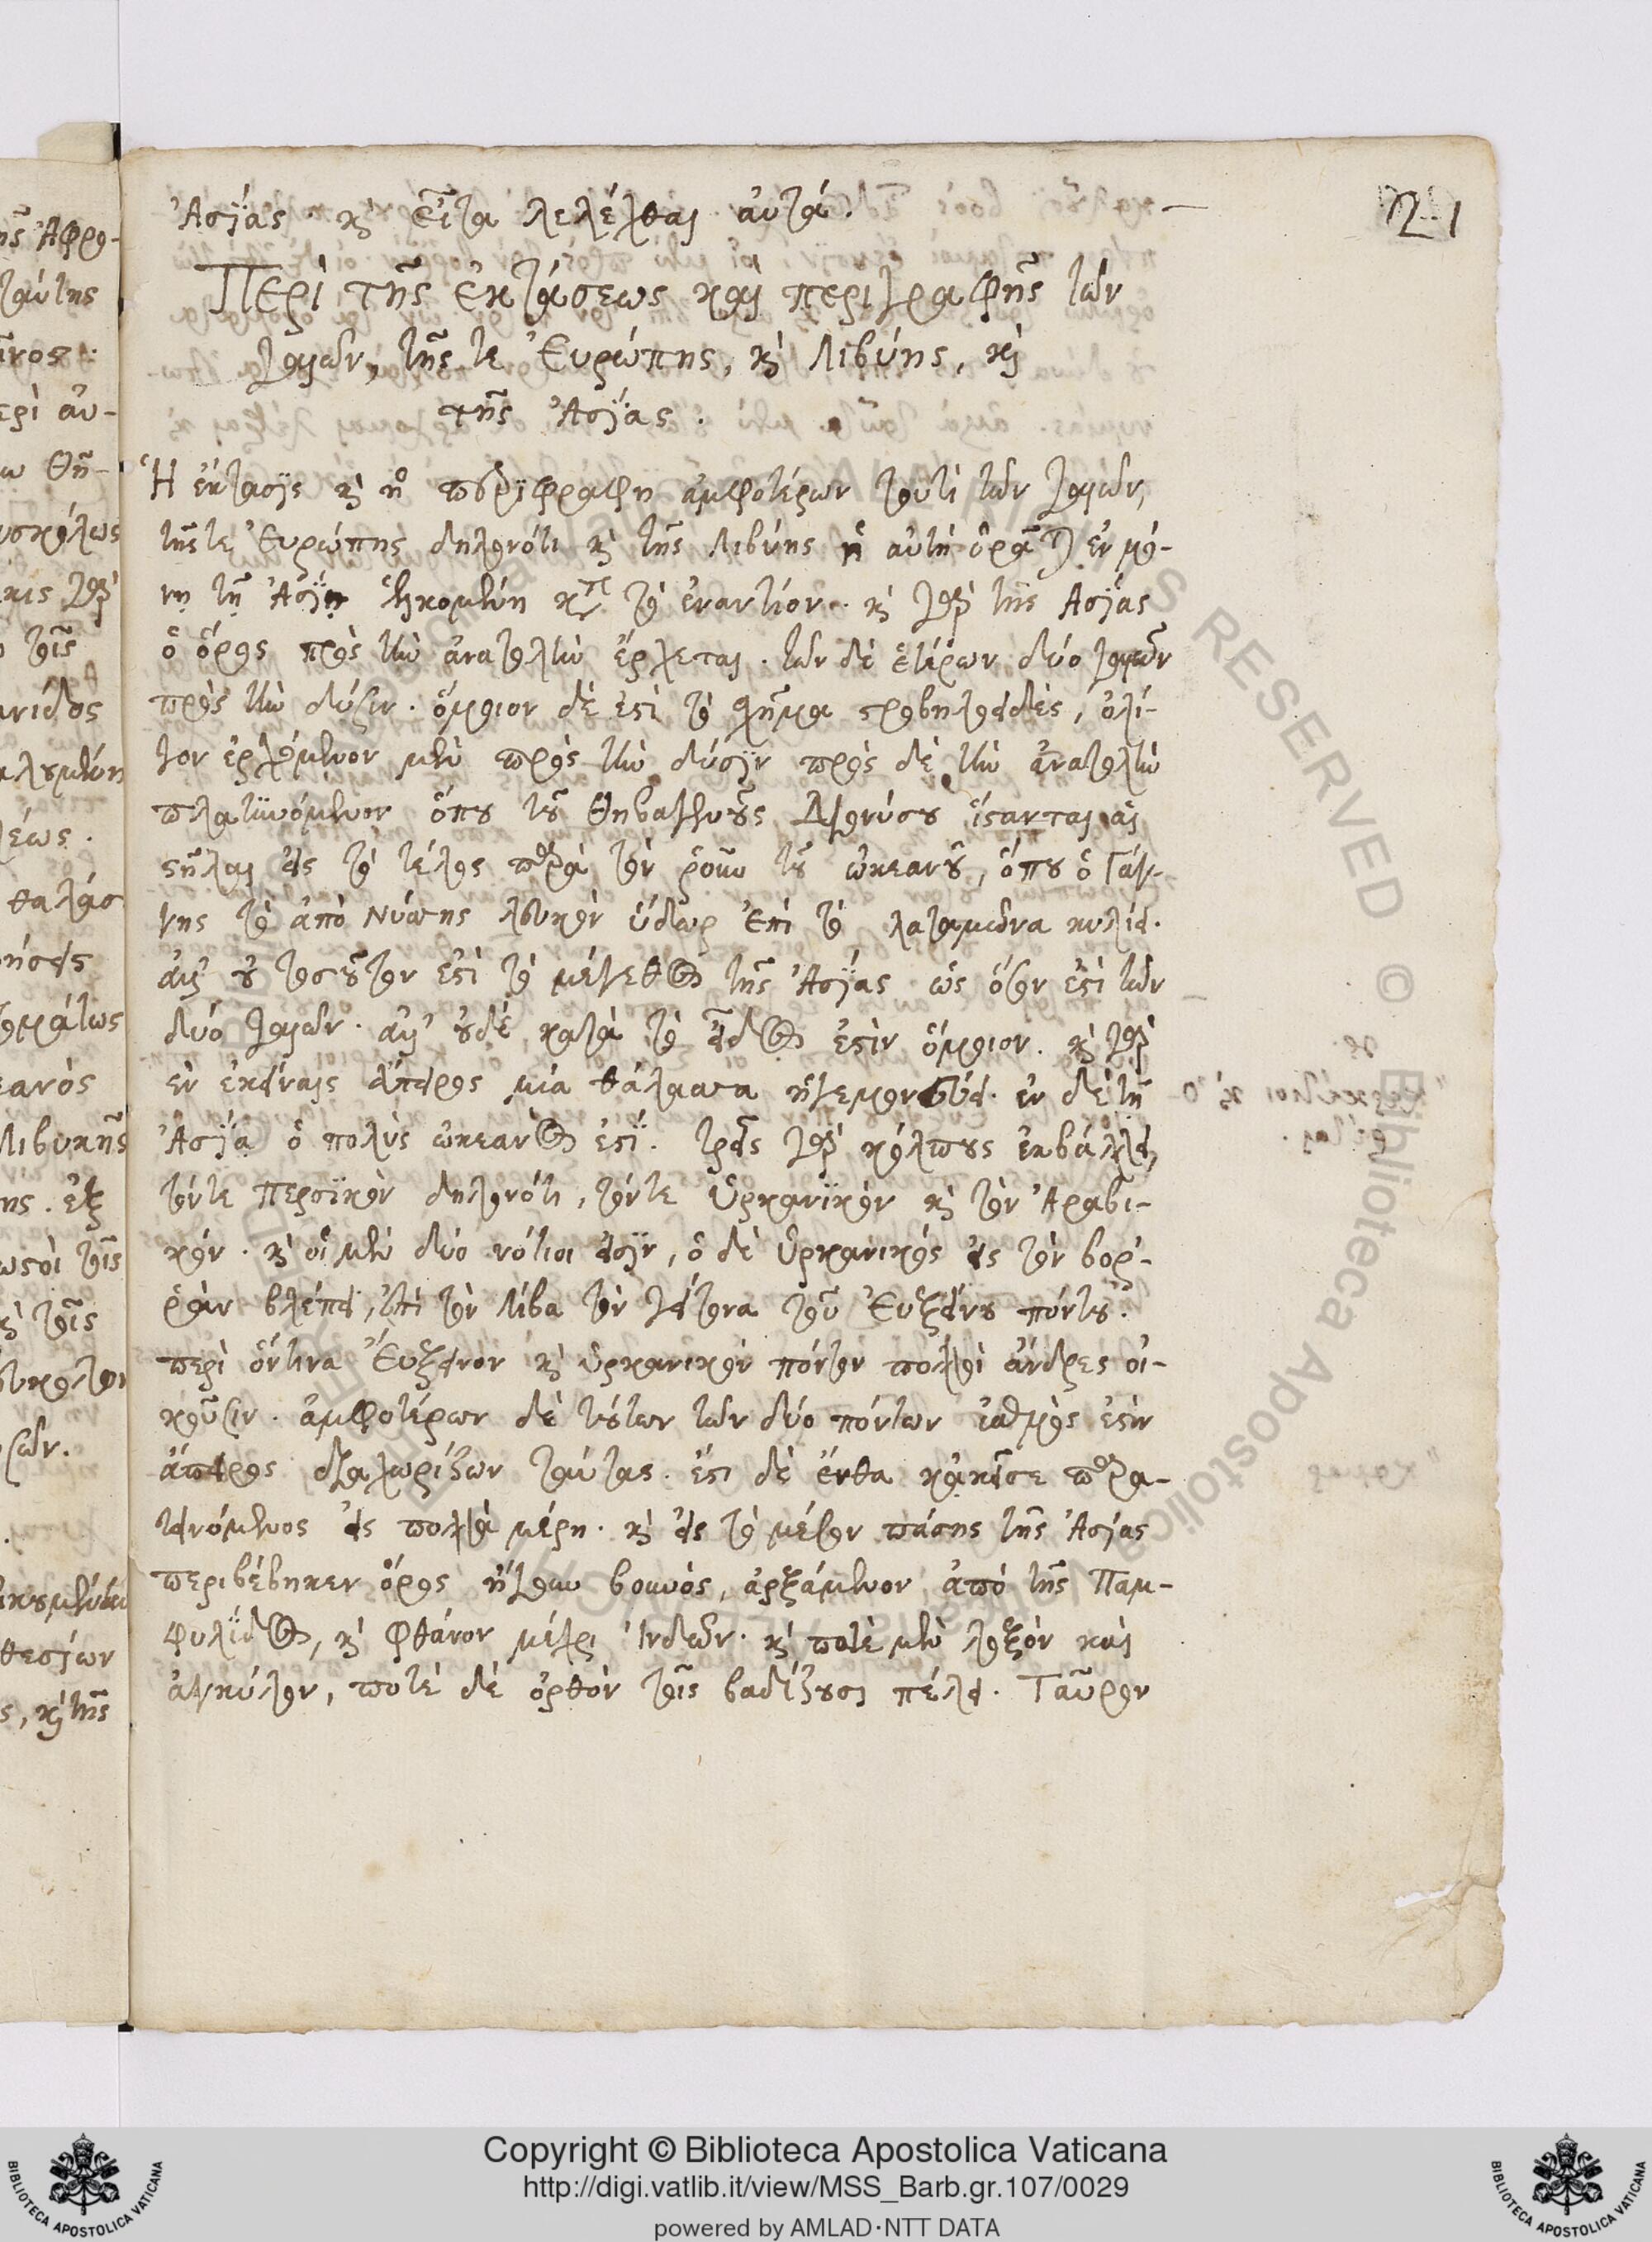 Ἀσίας. καὶ εἶτα λελέχθαι αὐτά.
21
Περὶ τῆς ἐκτάσεως καὶ περιγραφῆς τῶν
γαιῶν, τῆς τε Εὐρώπης, καὶ Λιβύης, καὶ
τῆς Ἀσίας.
Ἡ ἔκτασις καὶ ἡ περιγραφὴ ἀμφοτέρων τουτὶ τῶν γαιῶν,
τῆς τε Εὐρώπης δηλονότι καὶ τῆς Λιβύης ἡ αὐτὴ ὁρᾶται ἐν μό-
νῃ τῇ Ἀσίῃ κατὰ τὸ ἐναντίον. καὶ γὰρ τῆς Ἀσίας
ὁ ὅρος πρὸς τὴν ἀνατολὴν ἔρχεται. τῶν δὲ ἑτέρων δύο γαιῶν
πρὸς τὴν δύσιν. ὅμοιον δέ ἐστι τὸ σχῆμα στροβηλοειδὲς, ὀλί-
γον ἐρχόμενον μὲν πρὸς τὴν δύσιν πρὸς δὲ τὴν ἀνατολὴν
πλατυνόμενον ὅπου τοῦ Θηβαγενοῦς Διονύσου ἵστανται αἱ
στῆλαι εἰς τὸ τέλος παρὰ τὸν ῥοῦν τοῦ ὠκεανοῦ, ὅπου ὁ Γάγ-
γης τὸ ἀπὸ Νύσσης λευκὸν ὕδωρ ἐπὶ τὸ λαταμῶνα κυλίει.
ἀλλ' οὐ τοσοῦτόν ἐστι τὸ μέγεθος τῆς Ἀσίας ὡς ὅσον ἐστὶ τῶν
δύο γαιῶν. ἀλλ' οὐδὲ κατὰ τὸ εἶδος ἐστὶν ὅμοιον. καὶ γὰρ
ἐν ἐκείναις ἄπειρος μία θάλασσα ἡγεμονεύει. ἐν δὲ τῇ
Ἀσίᾳ ὁ πολὺς ὠκεανός ἐστι. τρεῖς γὰρ κόλπους ἐκβάλλει,
τόν τε Περσικὸν δηλονότι, τόν τε Ὑρκανικὸν καὶ τὸν Ἀραβι-
κόν. καὶ οἱ μὲν δύο νότιοι εἰσὶν, ὁ δὲ Ὑρκανικὸς εἰς τὸν βορ-
ρᾶν βλέπει, ἐπὶ τὸν λίβα τὸν γείτονα τοῦ Εὐξείνου πόντου.
περὶ ὅντινα Εὔξεινον καὶ ὑρκανικὸν πόντον πολλοὶ ἄνδρες οἰ-
κοῦσιν. ἀμφοτέρων δὲ τούτων τῶν δύο πόντων ἰσθμός ἐστιν
ἄπειρος διαχωρίζων ταύτας. ἔστι δὲ ἔνθα κἀκεῖσε παρα-
τεινόμενος εἰς πολλὰ μέρη. καὶ εἰς τὸ μέσον πάσης τῆς Ἀσίας
περιβέβηκεν ὄρος ἤγουν βουνὸς, ἀρξάμενον ἀπὸ τῆς Παμ-
φυλίδος, καὶ φθάνον μέχρι Ἰνδῶν. καὶ ποτὲ μὲν λοξὸν καὶ
ἀγκύλον, ποτὲ δὲ ὀρθὸν τοῖς βαδίζουσι πέλει. Ταῦρον
Copyright © Biblioteca Apostolica Vaticana
http://digi.vatlib.it/view/MSS_Barb.gr.107/0029
powered by AMLAD·NTT DATA